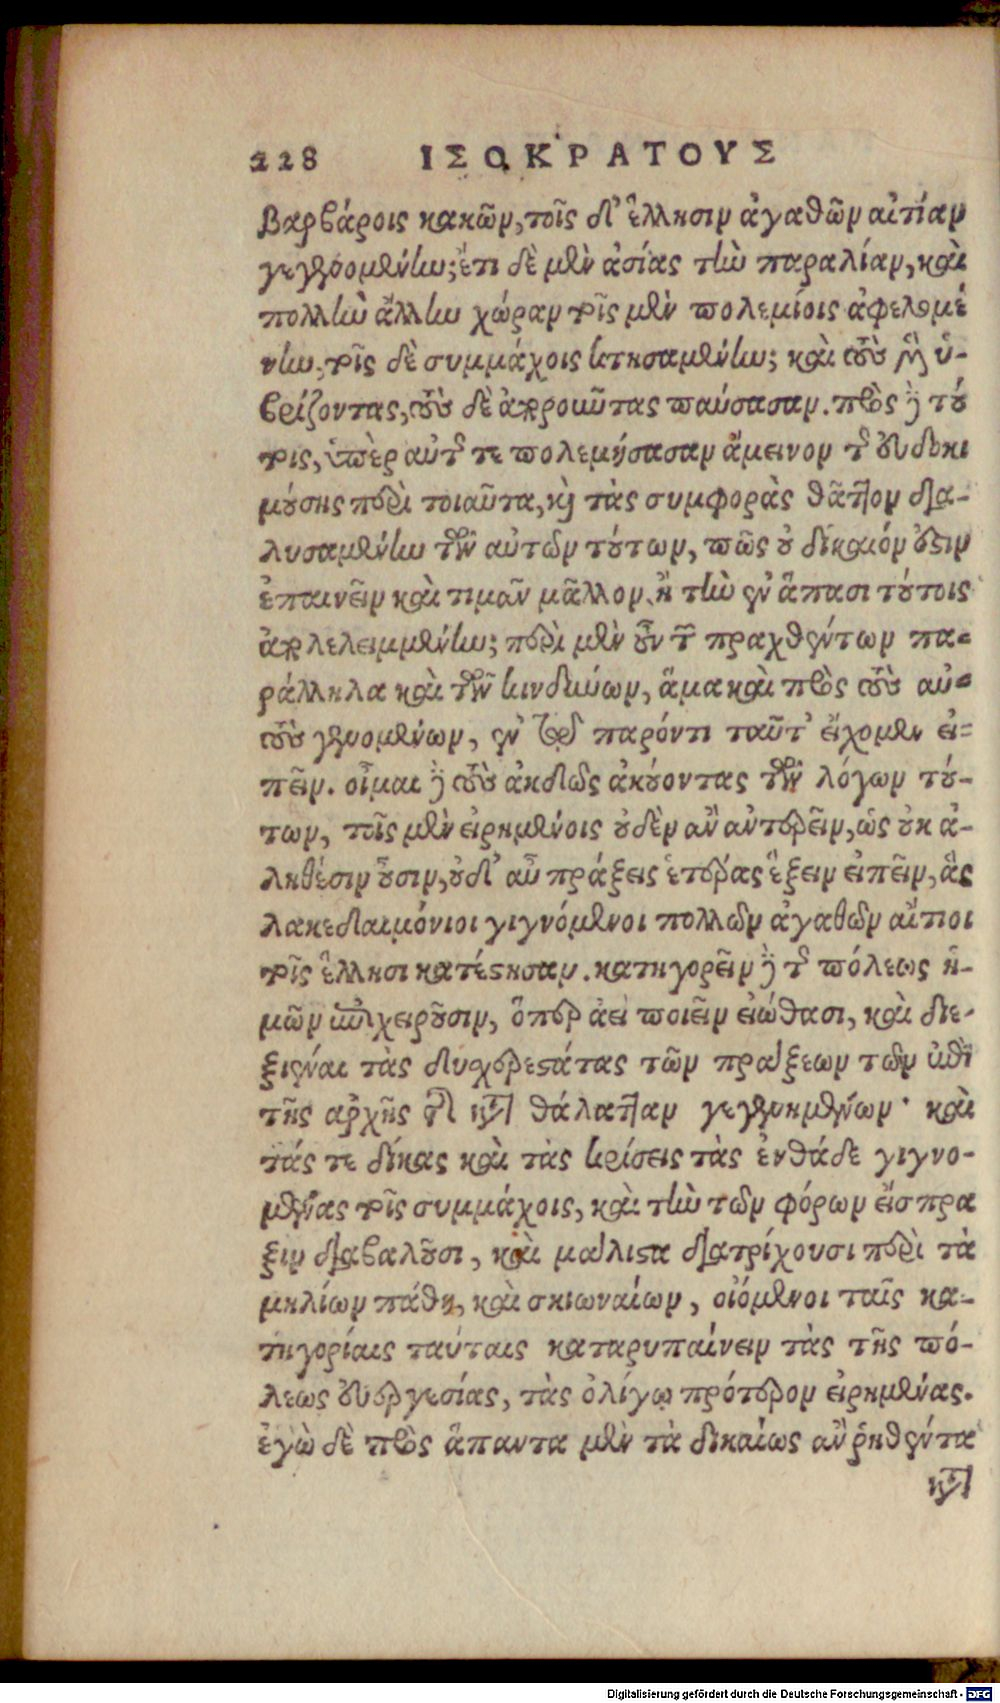 228 ΙΣΟΚΡΑΤΟΥΣ
βαρβάροις κακῶν, τοῖς δ' ἕλλησιν ἀγαθῶν αἰτίαν
γεγενημένην; ἔτι δὲ μὲν ἀσίας τὴν παραλίαν, καὶ
πολλὴν ἄλλην χώραν τοῖς μὲν πολεμίοις ἀφελομέ
νην, τοῖς δὲ συμμάχοις κτησαμένην; καὶ τοὺς μὲν ὑ-
βρίζοντας, τοὺς δὲ ἀποροῦντας παύσασαν. πρὸς δὲ τού
τοις, ὑπὲρ αὑτῆς τε πολεμήσασαν ἄμεινον τῆς εὐδοκι
μούσης περὶ τοιαῦτα, καὶ τὰς συμφορὰς θᾶττον δια-
λυσαμένην τῶν αὐτῶν τούτων, πῶς οὐ δίκαιόν ἐστιν
ἐπαινεῖν καὶ τιμᾶν μᾶλλον, ἢ τὴν ἐν ἅπασι τούτοις
ἀπολελειμμένην; περὶ μὲν οὖν τῶν πραχθέντων πα-
ράλληλα καὶ τῶν κινδύνων, ἅμα καὶ πρὸς τοὺς αὐ-
τοὺς γενομένων, ἐν τῷ παρόντι ταῦτ' εἴχομεν εἰ-
πεῖν. οἶμαι δὲ τοὺς ἀηδῶς ἀκούοντας τῶν λόγων τού-
των, τοῖς μὲν εἰρημένοις οὐδὲν ἂν ἀντερεῖν, ὡς οὐκ ἀ-
ληθέσιν οὖσιν, οὐδ' αὖ πράξεις ἑτέρας ἕξειν εἰπεῖν, ἃς
λακεδαιμόνιοι γιγνόμενοι πολλῶν ἀγαθῶν αἴτιοι
τοῖς ἕλλησι κατέστησαν. κατηγορεῖν δὲ τῆς πόλεως ἡ-
μῶν ἐπιχειροῦσιν, ὅπερ ἀεὶ ποιεῖν εἰώθασι, καὶ διε-
ξιέναι τὰς δυσχερεστάτας τῶν πράξεων τῶν ἐπὶ
τῆς ἀρχῆς τῆς κατὰ θάλατταν γεγενημένων· καὶ
τάς τε δίκας καὶ τὰς κρίσεις τὰς ἐνθάδε γιγνο-
μένας τοῖς συμμάχοις, καὶ τὴν τῶν φόρων εἴσπρα
ξιν διαβαλοῦσι, καὶ μάλιστα διατρίχουσι περὶ τὰ
μηλίων πάθη, καὶ σκιωναίων, οἰόμενοι ταῖς κα-
τηγορίαις ταύταις καταρυπαίνειν τὰς τῆς πό-
λεως εὐεργεσίας, τὰς ὀλίγῳ πρότερον εἰρημένας.
ἐγὼ δὲ πρὸς ἅπαντα μὲν τὰ δικαίως ἂν ῥηθέντα
κατὰ
Digitalisierung gefördert durch die Deutsche Forschungsgemeinschaft - DFG